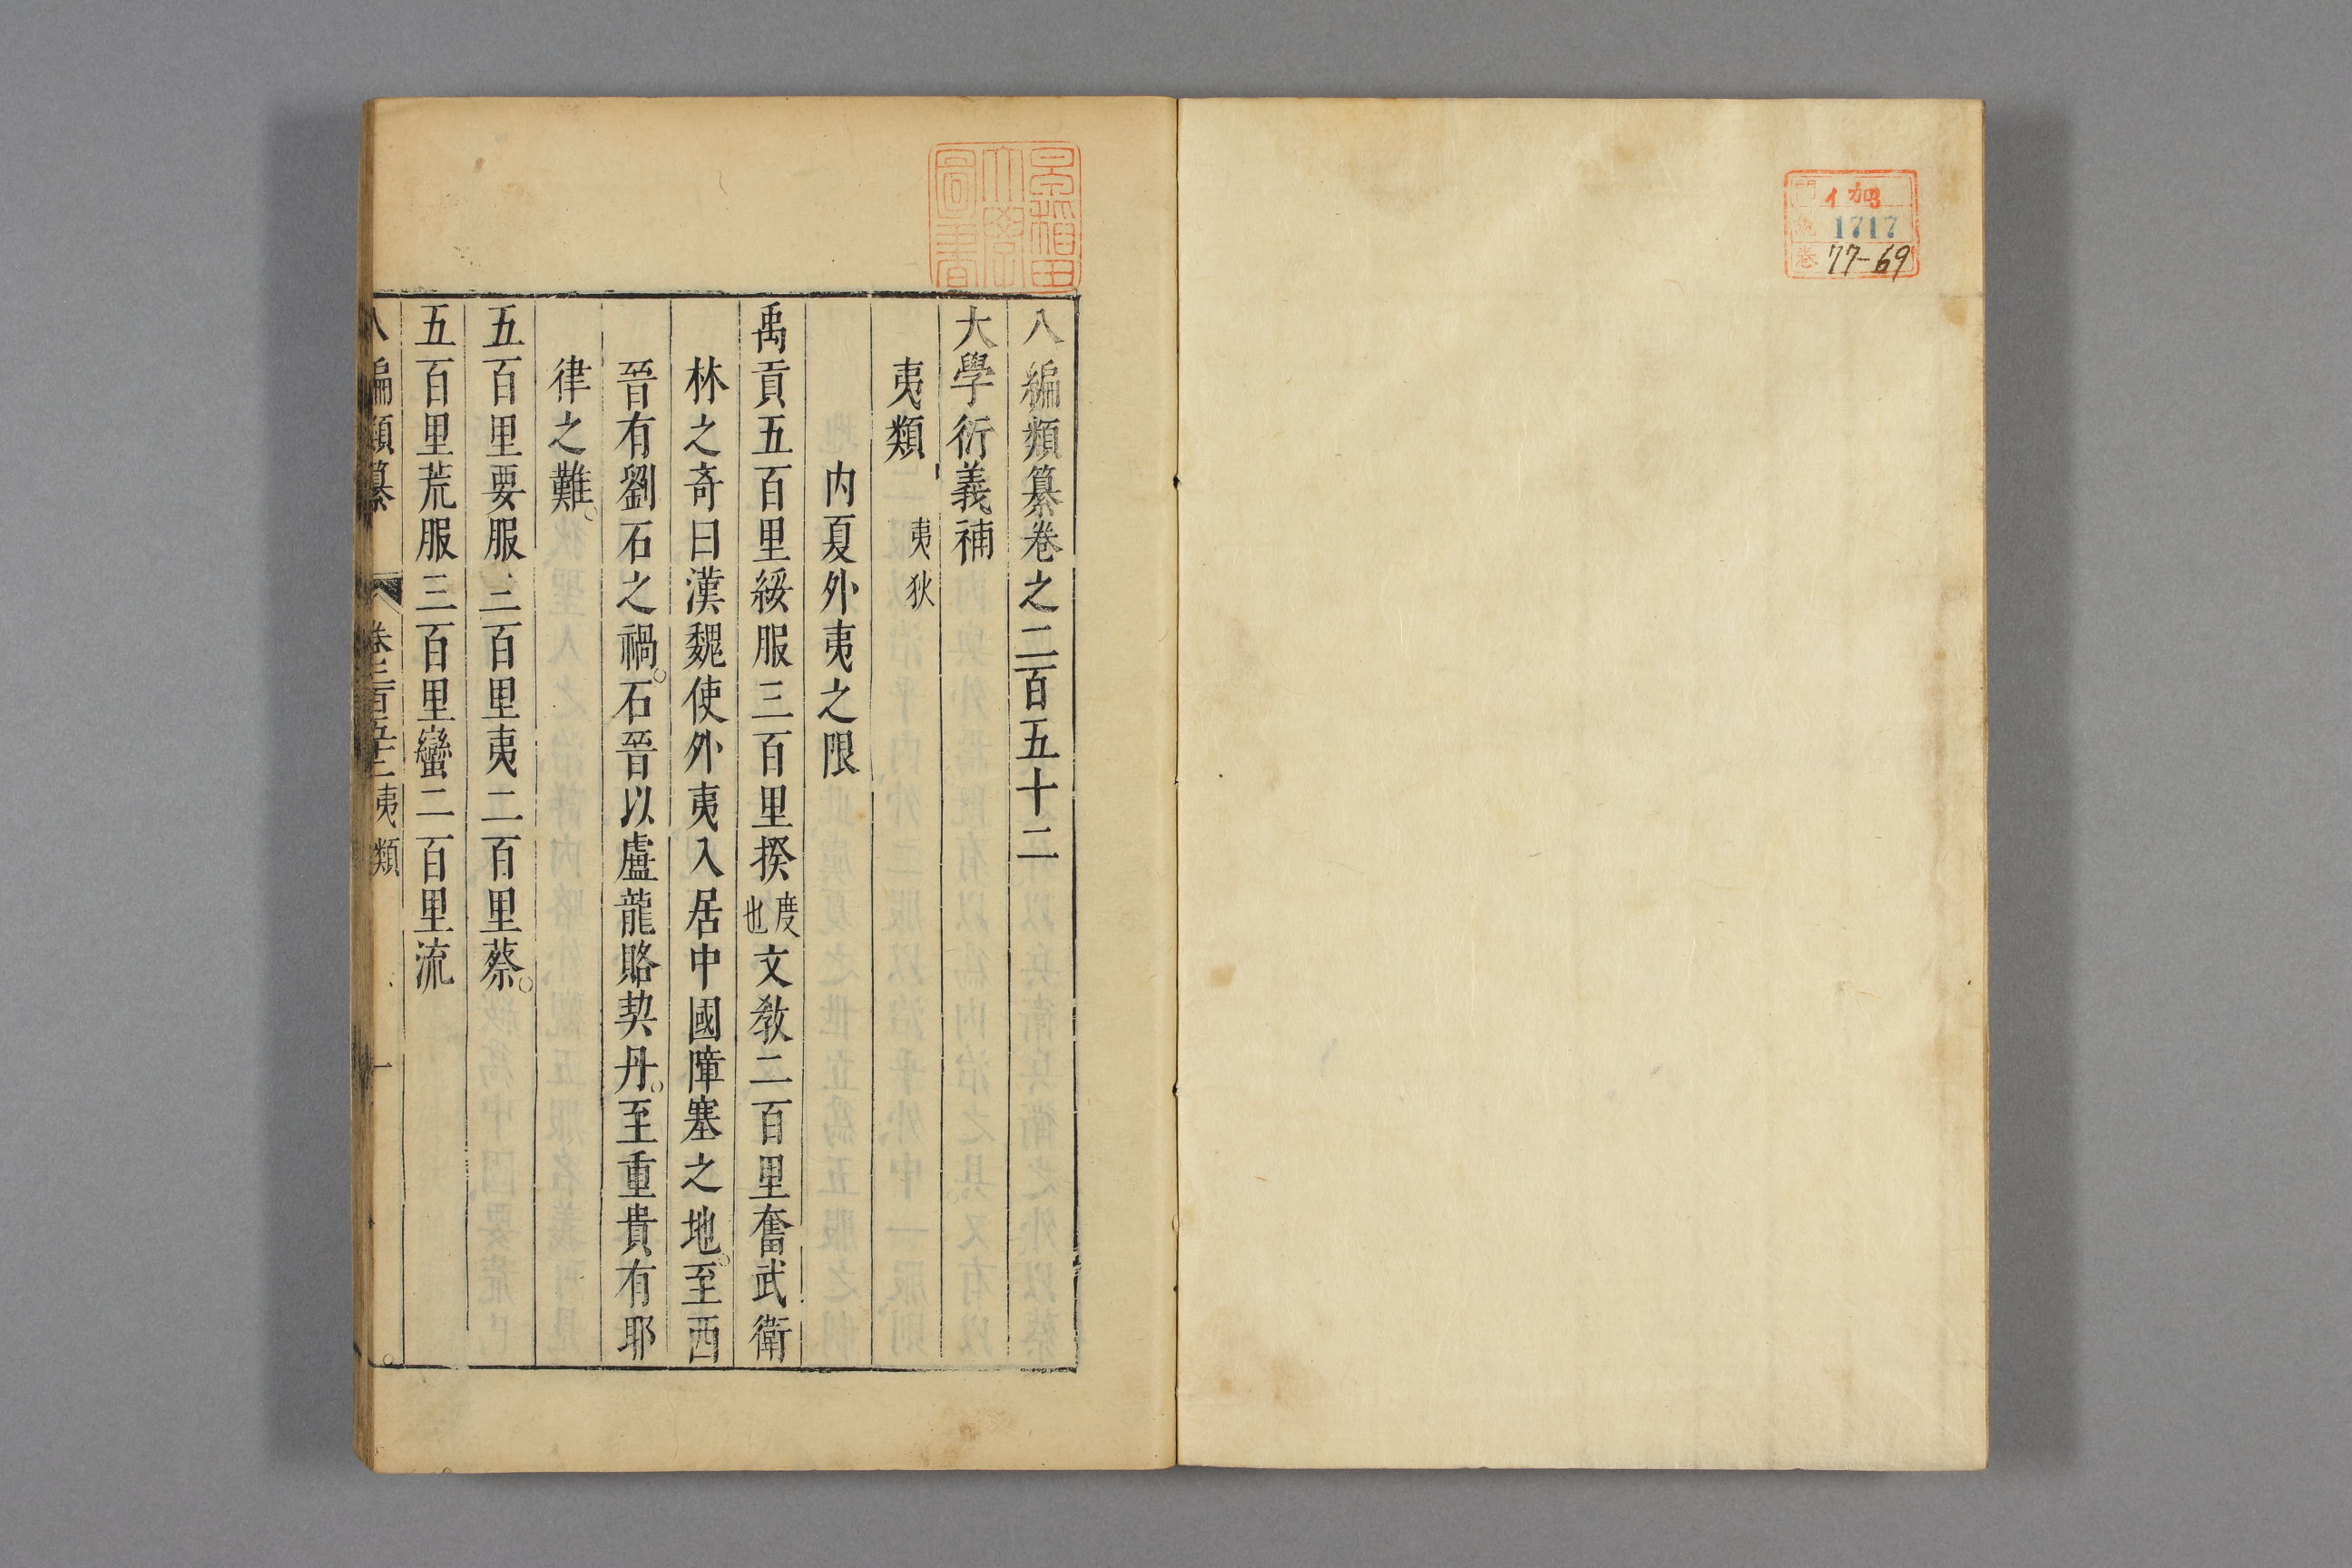 1717
77-69
早稲田
大學
圖書
八編類纂卷之二百五十二
大學衍義補
夷類 夷狄
内夏外夷之限
禹貢五百里綏服三百里揆度也文教二百里奮武衛
林之奇曰漢魏使外夷入居中國障塞之地。至西
晉有劉石之禍。石晉以盧龍賂契丹。至重貴有耶
律之難。
五百里要服三百里夷二百里蔡。
五百里荒服三百里蠻二百里流
八編類纂 卷二百五十二 夷類 一